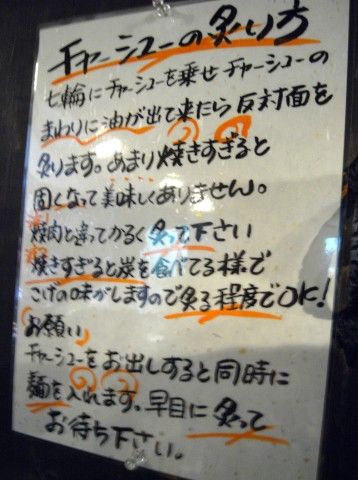 チャーシューの炙り方
七輪にチャーシューを乗せチャーシューの
まわりに油が出て来たら反対面を
炙ります。あまり焼きすぎると
固くなって美味しくありません。
焼肉と違ってかるく炙って下さい
焼きすぎると炭を食べてる様で
こげの味がしますので炙る程度でOK!
お願い
チャーシューをお出しすると同時に
麺を入れます。早目に炙って
お待ち下さい。